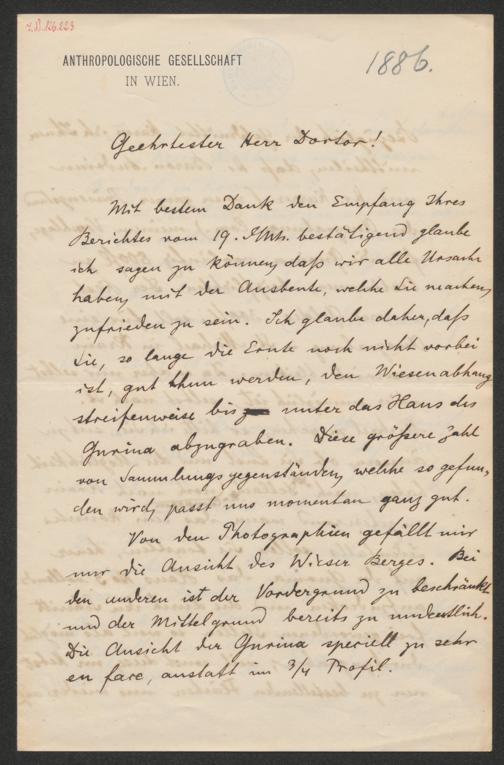 ANTHROPOLOGISCHE GESELLSCHAFT
IN WIEN.
1886.
Geehrtester Herr Doctor!
Mit bestem Dank den Empfang Ihres
Berichtes vom 19. d. Mts. bestätigend glaube
ich sagen zu können, daß wir alle Ursache
haben, mit der Ausbeute, welche Sie machen,
zufrieden zu sein. Ich glaube daher, daß
Sie, so lange die Ernte noch nicht vorbei
ist, gut thun werden, den Wiesenabhang
streifenweise bis unter das Haus des
Gurina abzugraben. Diese größere Zahl
von Sammlungsgegenständen, welche so gefun-
den wird, passt uns momentan ganz gut.
Von den Photographien gefällt mir
nur die Ansicht des Wieser Berges. Bei
den anderen ist der Vordergrund zu beschränkt
und der Mittelgrund bereits zu undeutlich.
Die Ansicht der Gurina speciell zu sehr
en face, anstatt im 3/4 Profil.